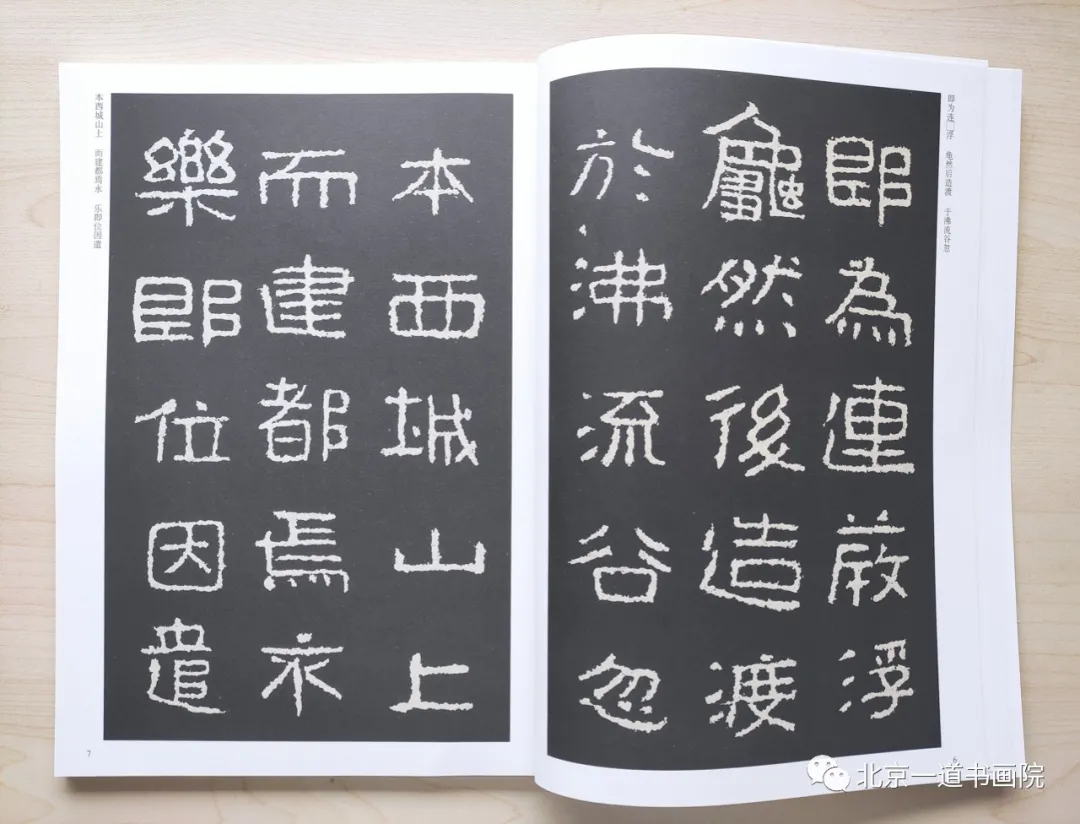 即为连□浮 龟然后造渡 于沸流谷忽
即為連葭浮
龜然後造渡
於沸流谷忽
6
本西城山上
而建都焉永
樂即位因遣
本西城山上 而建都焉永 乐即位因遣
7
北京一道书画院